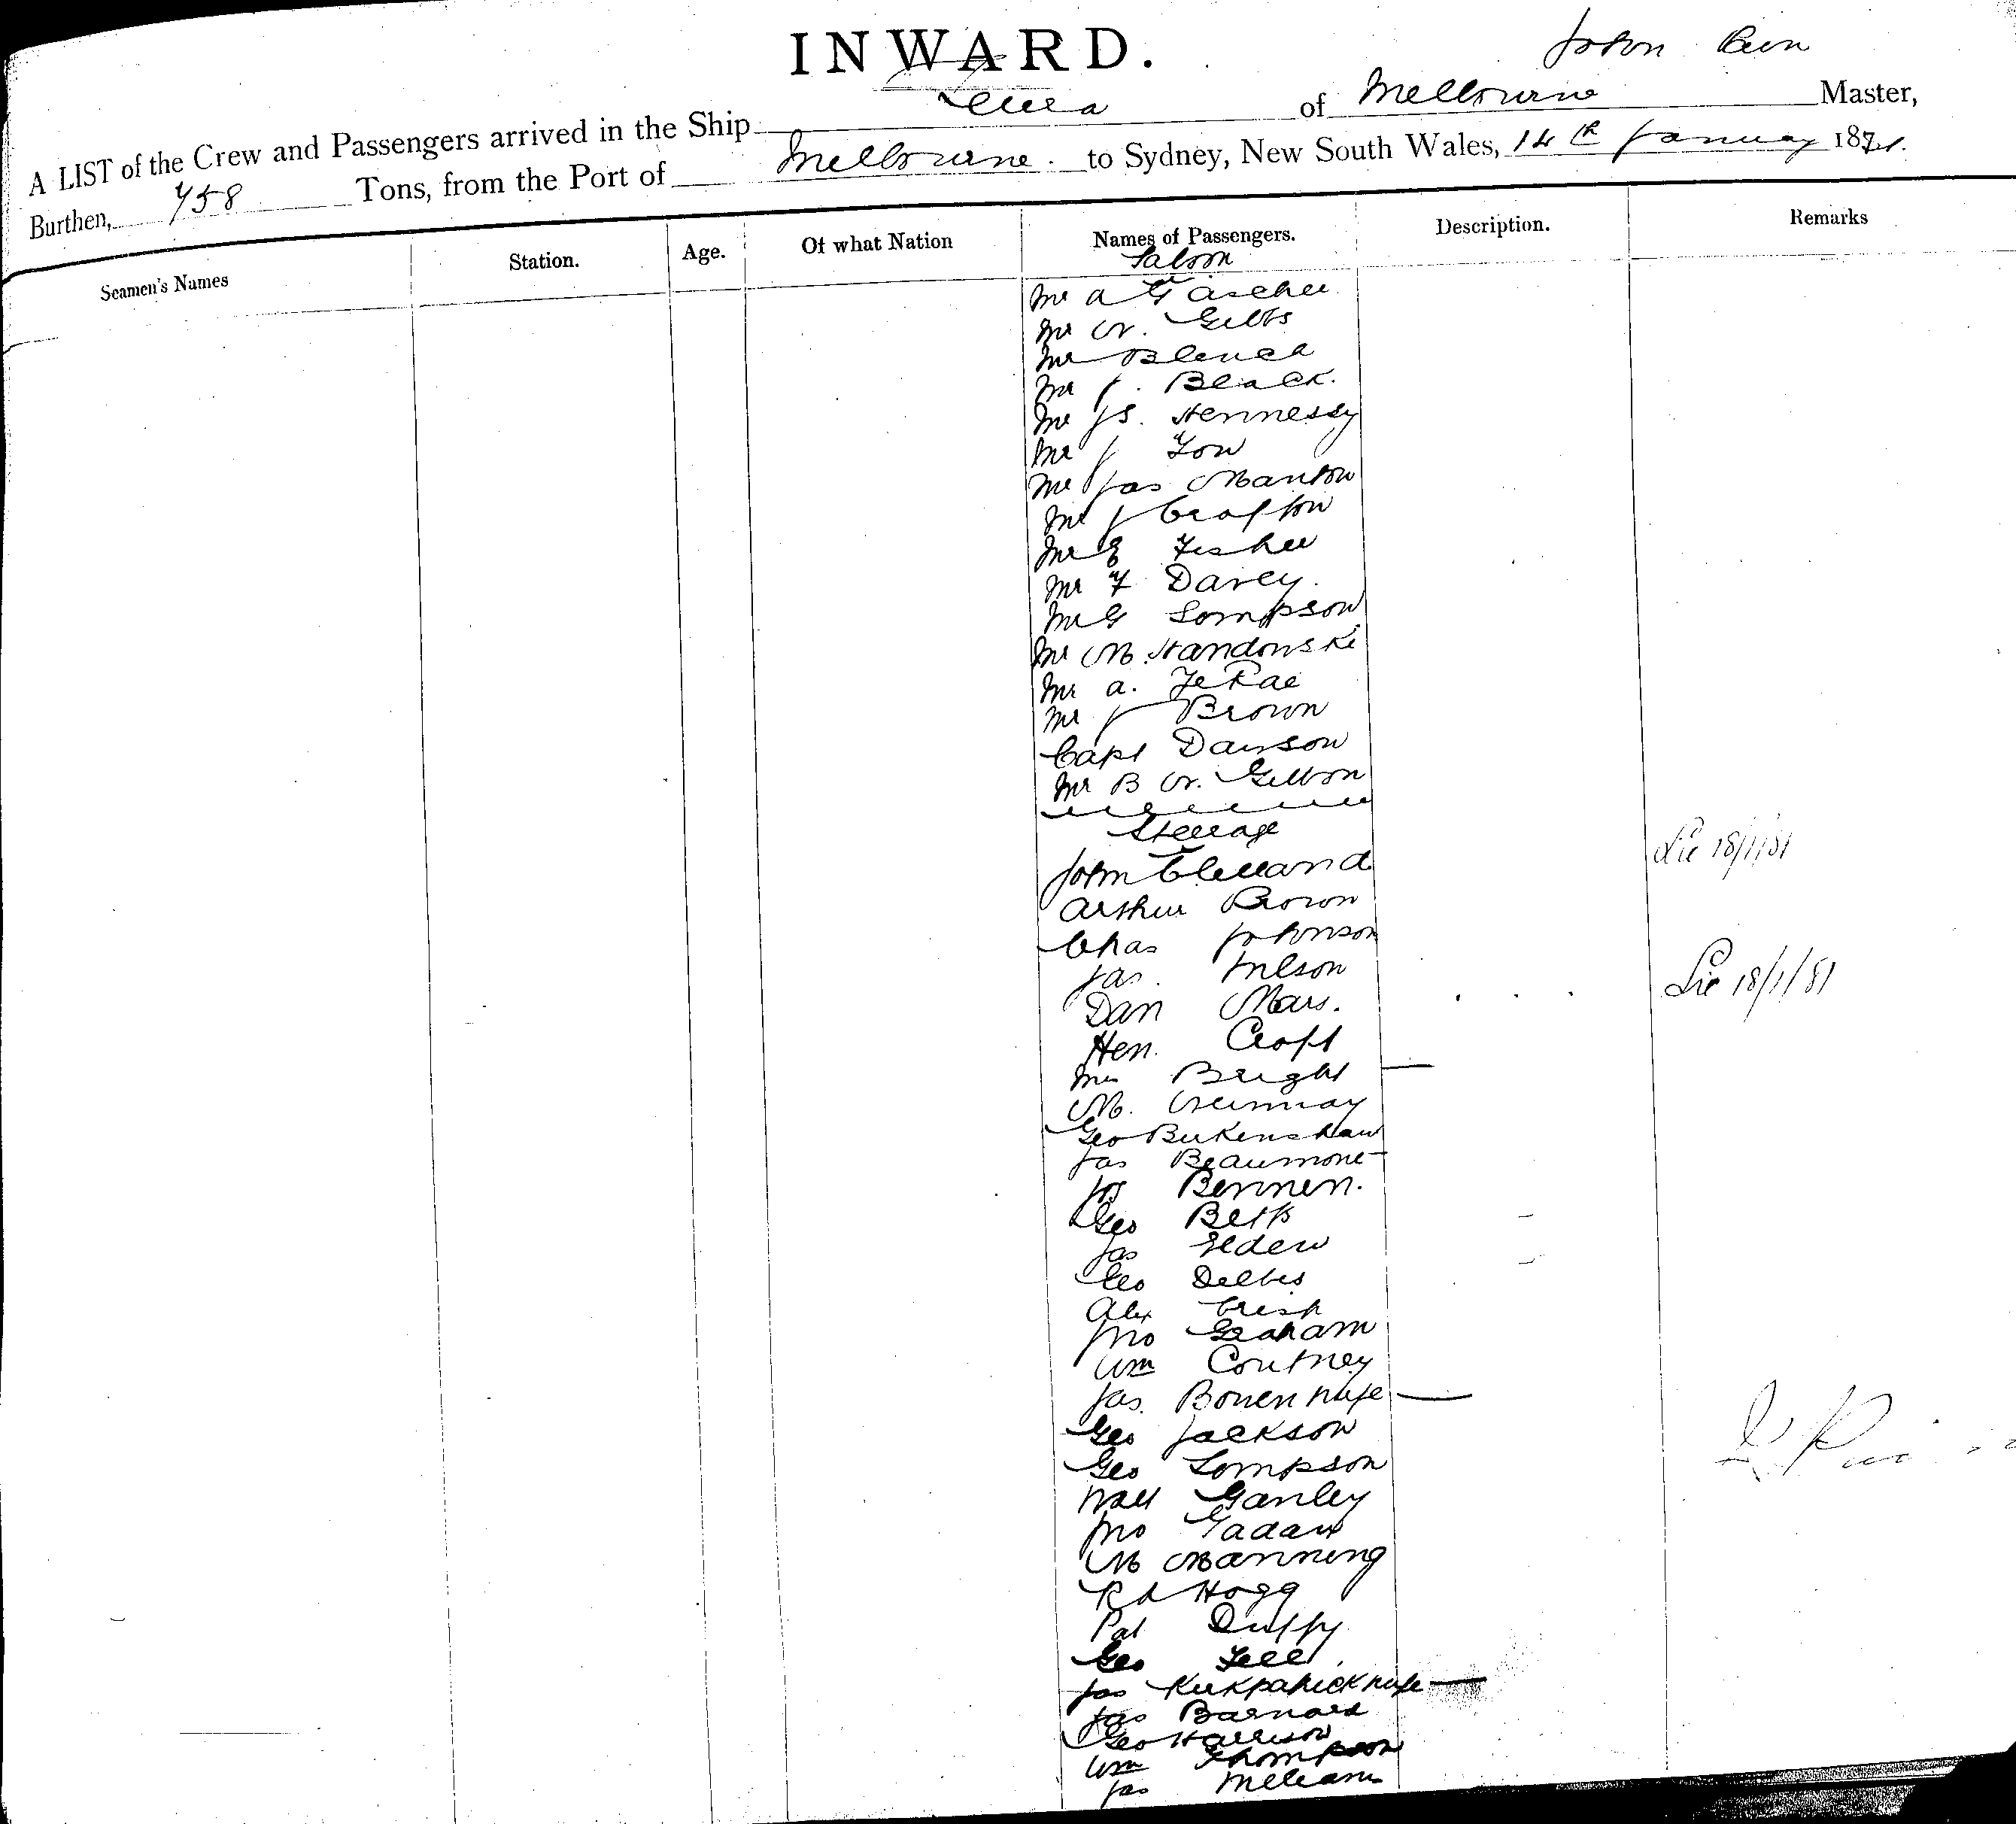 INWARD.
John
A LIST of the Crew and Passengers arrived in the Ship of Melbourne Master,
Burthen, 758 Tons, from the Port of Melbourne. to Sydney, New South Wales, 14th January 18
Seamen's Names Station. Age. Of what Nation Names of Passengers. Description. Remarks
Saloon
Mr A G
Mr W. Gibbs
Mr
Mr J. Black.
Mr JS. Hennessy
Mr J
Mr Jas Manton
Mr J Crafton
Mr E Fisher
Mr F Davey.
Mr G Sompson
Mr M. Handonski
Mr A.
Mr J Brown
Capt Dawson
Mr B W. Gibbon
Steerage
John 18/1/81
Arthur Brown
Chas Johnson
Jas. Wilson
Dan Mars. 18/1/81
Hen. Croft
Mrs Bright
M.
Geo Birkenshaw
Jas Beaumont
Bennen.
Geo Betts
Jas
Geo
Alex Crisp
Jno Graham
Wm Coutney
Jas. Bowen wife
Geo Jackson
Geo Sompson
Walt Ganley
Jno
M Manning
Rd Hogg
Pat Duffy
Geo
Jas Kirkpatrick wife
Jas Barnard
Geo Harrison
Wm Thompson
Jas